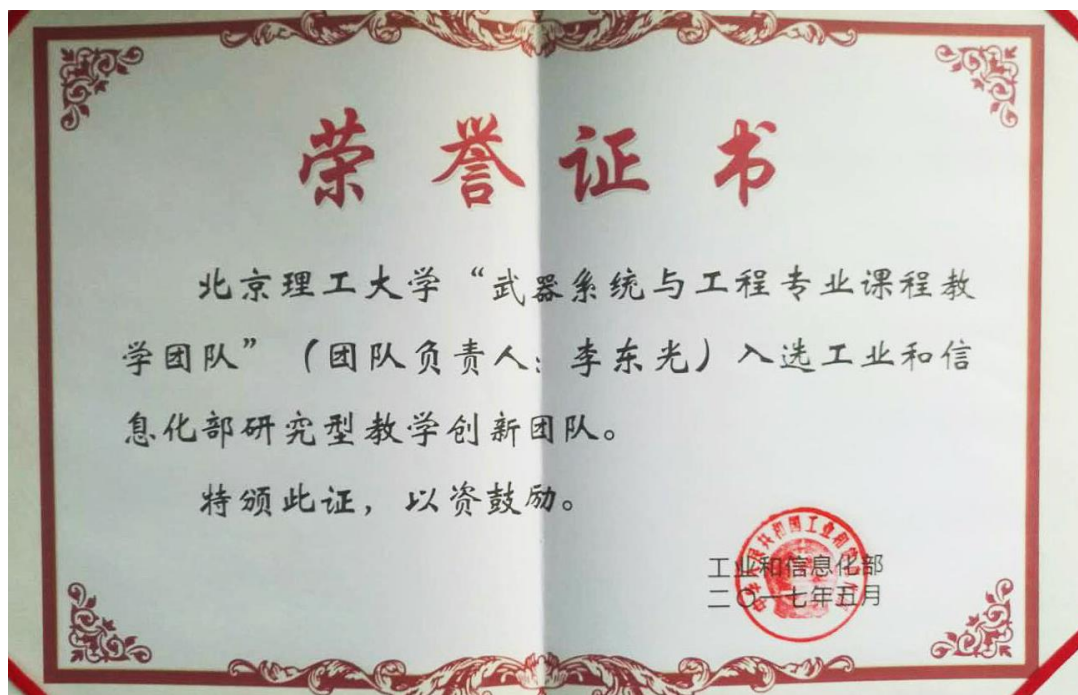 荣誉证书
北京理工大学“武器系统与工程专业课程教
学团队”（团队负责人：李东光）入选工业和信
息化部研究型教学创新团队。
特颁此证，以资鼓励。
中华人民共和国工业和信息化部
工业和信息化部
二〇一七年五月